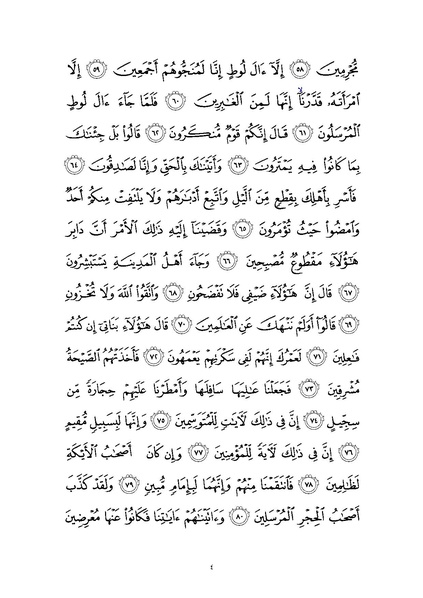 مُّجْرِمِينَ ٥٨ إِلَّآ ءَالَ لُوطٍ إِنَّا لَمُنَجُّوهُمْ أَجْمَعِينَ ٥٩ إِلَّا
ٱمْرَأَتَهُۥ قَدَّرْنَآ إِنَّهَا لَمِنَ ٱلْغَٰبِرِينَ ٦٠ فَلَمَّا جَآءَ ءَالَ لُوطٍ
ٱلْمُرْسَلُونَ ٦١ قَالَ إِنَّكُمْ قَوْمٌ مُّنكَرُونَ ٦٢ قَالُوا۟ بَلْ جِئْنَٰكَ
بِمَا كَانُوا۟ فِيهِ يَمْتَرُونَ ٦٣ وَأَتَيْنَٰكَ بِٱلْحَقِّ وَإِنَّا لَصَٰدِقُونَ ٦٤
فَأَسْرِ بِأَهْلِكَ بِقِطْعٍ مِّنَ ٱلَّيْلِ وَٱتَّبِعْ أَدْبَٰرَهُمْ وَلَا يَلْتَفِتْ مِنكُمْ أَحَدٌ
وَٱمْضُوا۟ حَيْثُ تُؤْمَرُونَ ٦٥ وَقَضَيْنَآ إِلَيْهِ ذَٰلِكَ ٱلْأَمْرَ أَنَّ دَابِرَ
هَٰٓؤُلَآءِ مَقْطُوعٌ مُّصْبِحِينَ ٦٦ وَجَآءَ أَهْلُ ٱلْمَدِينَةِ يَسْتَبْشِرُونَ
٦٧ قَالَ إِنَّ هَٰٓؤُلَآءِ ضَيْفِى فَلَا تَفْضَحُونِ ٦٨ وَٱتَّقُوا۟ ٱللَّهَ وَلَا تُخْزُونِ
٦٩ قَالُوٓا۟ أَوَلَمْ نَنْهَكَ عَنِ ٱلْعَٰلَمِينَ ٧٠ قَالَ هَٰٓؤُلَآءِ بَنَاتِىٓ إِن كُنتُمْ
فَٰعِلِينَ ٧١ لَعَمْرُكَ إِنَّهُمْ لَفِى سَكْرَتِهِمْ يَعْمَهُونَ ٧٢ فَأَخَذَتْهُمُ ٱلصَّيْحَةُ
مُشْرِقِينَ ٧٣ فَجَعَلْنَا عَٰلِيَهَا سَافِلَهَا وَأَمْطَرْنَا عَلَيْهِمْ حِجَارَةً مِّن
سِجِّيلٍ ٧٤ إِنَّ فِى ذَٰلِكَ لَءَايَٰتٍ لِّلْمُتَوَسِّمِينَ ٧٥ وَإِنَّهَا لَبِسَبِيلٍ مُّقِيمٍ
٧٦ إِنَّ فِى ذَٰلِكَ لَءَايَةً لِّلْمُؤْمِنِينَ ٧٧ وَإِن كَانَ أَصْحَٰبُ ٱلْأَيْكَةِ
لَظَٰلِمِينَ ٧٨ فَٱنتَقَمْنَا مِنْهُمْ وَإِنَّهُمَا لَبِإِمَامٍ مُّبِينٍ ٧٩ وَلَقَدْ كَذَّبَ
أَصْحَٰبُ ٱلْحِجْرِ ٱلْمُرْسَلِينَ ٨٠ وَءَاتَيْنَٰهُمْ ءَايَٰتِنَا فَكَانُوا۟ عَنْهَا مُعْرِضِينَ
٤